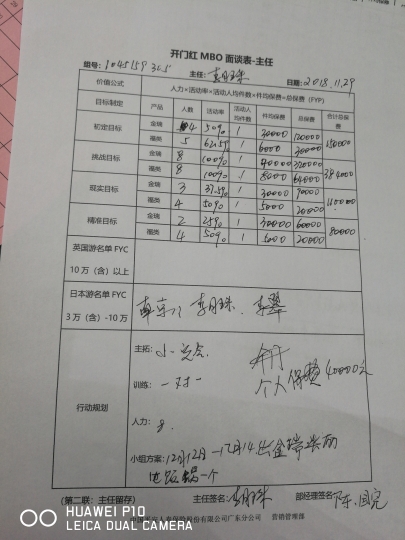 开门红 MBO 面谈表-主任
组号: 1045159365 主任: 李月珠 日期: 2018.11.29
价值公式 人力×活动率×活动人均件数×件均保费=总保费 (FYP)
目标制定 产品 人数 活动率 活动人均件数 件均保费 总保费 合计总保费
初定目标 金瑞 4 50% 1 30000 120000 150000
福类 5 62.5% 1 6000 30000
挑战目标 金瑞 8 100% 1 40000 320000 384000
福类 8 100% 1 8000 64000
现实目标 金瑞 3 37.5% 1 30000 90000 110000
福类 4 50% 1 5000 20000
精准目标 金瑞 2 25% 1 30000 60000 80000
福类 4 50% 1 5000 20000
英国游名单 FYC
10 万（含）以上
日本游名单 FYC
3 万（含）-10 万
李月珠.
行动规划
主拓: 小
个人保费40000元
训练: 一对一
人力: 8
小组方案: 12月12日-12月14 出金瑞
一个
（第二联：主任留存） 主任签名: 李月珠 部经理签名:
股份有限公司广东分公司 营销管理部
HUAWEI P10
LEICA DUAL CAMERA